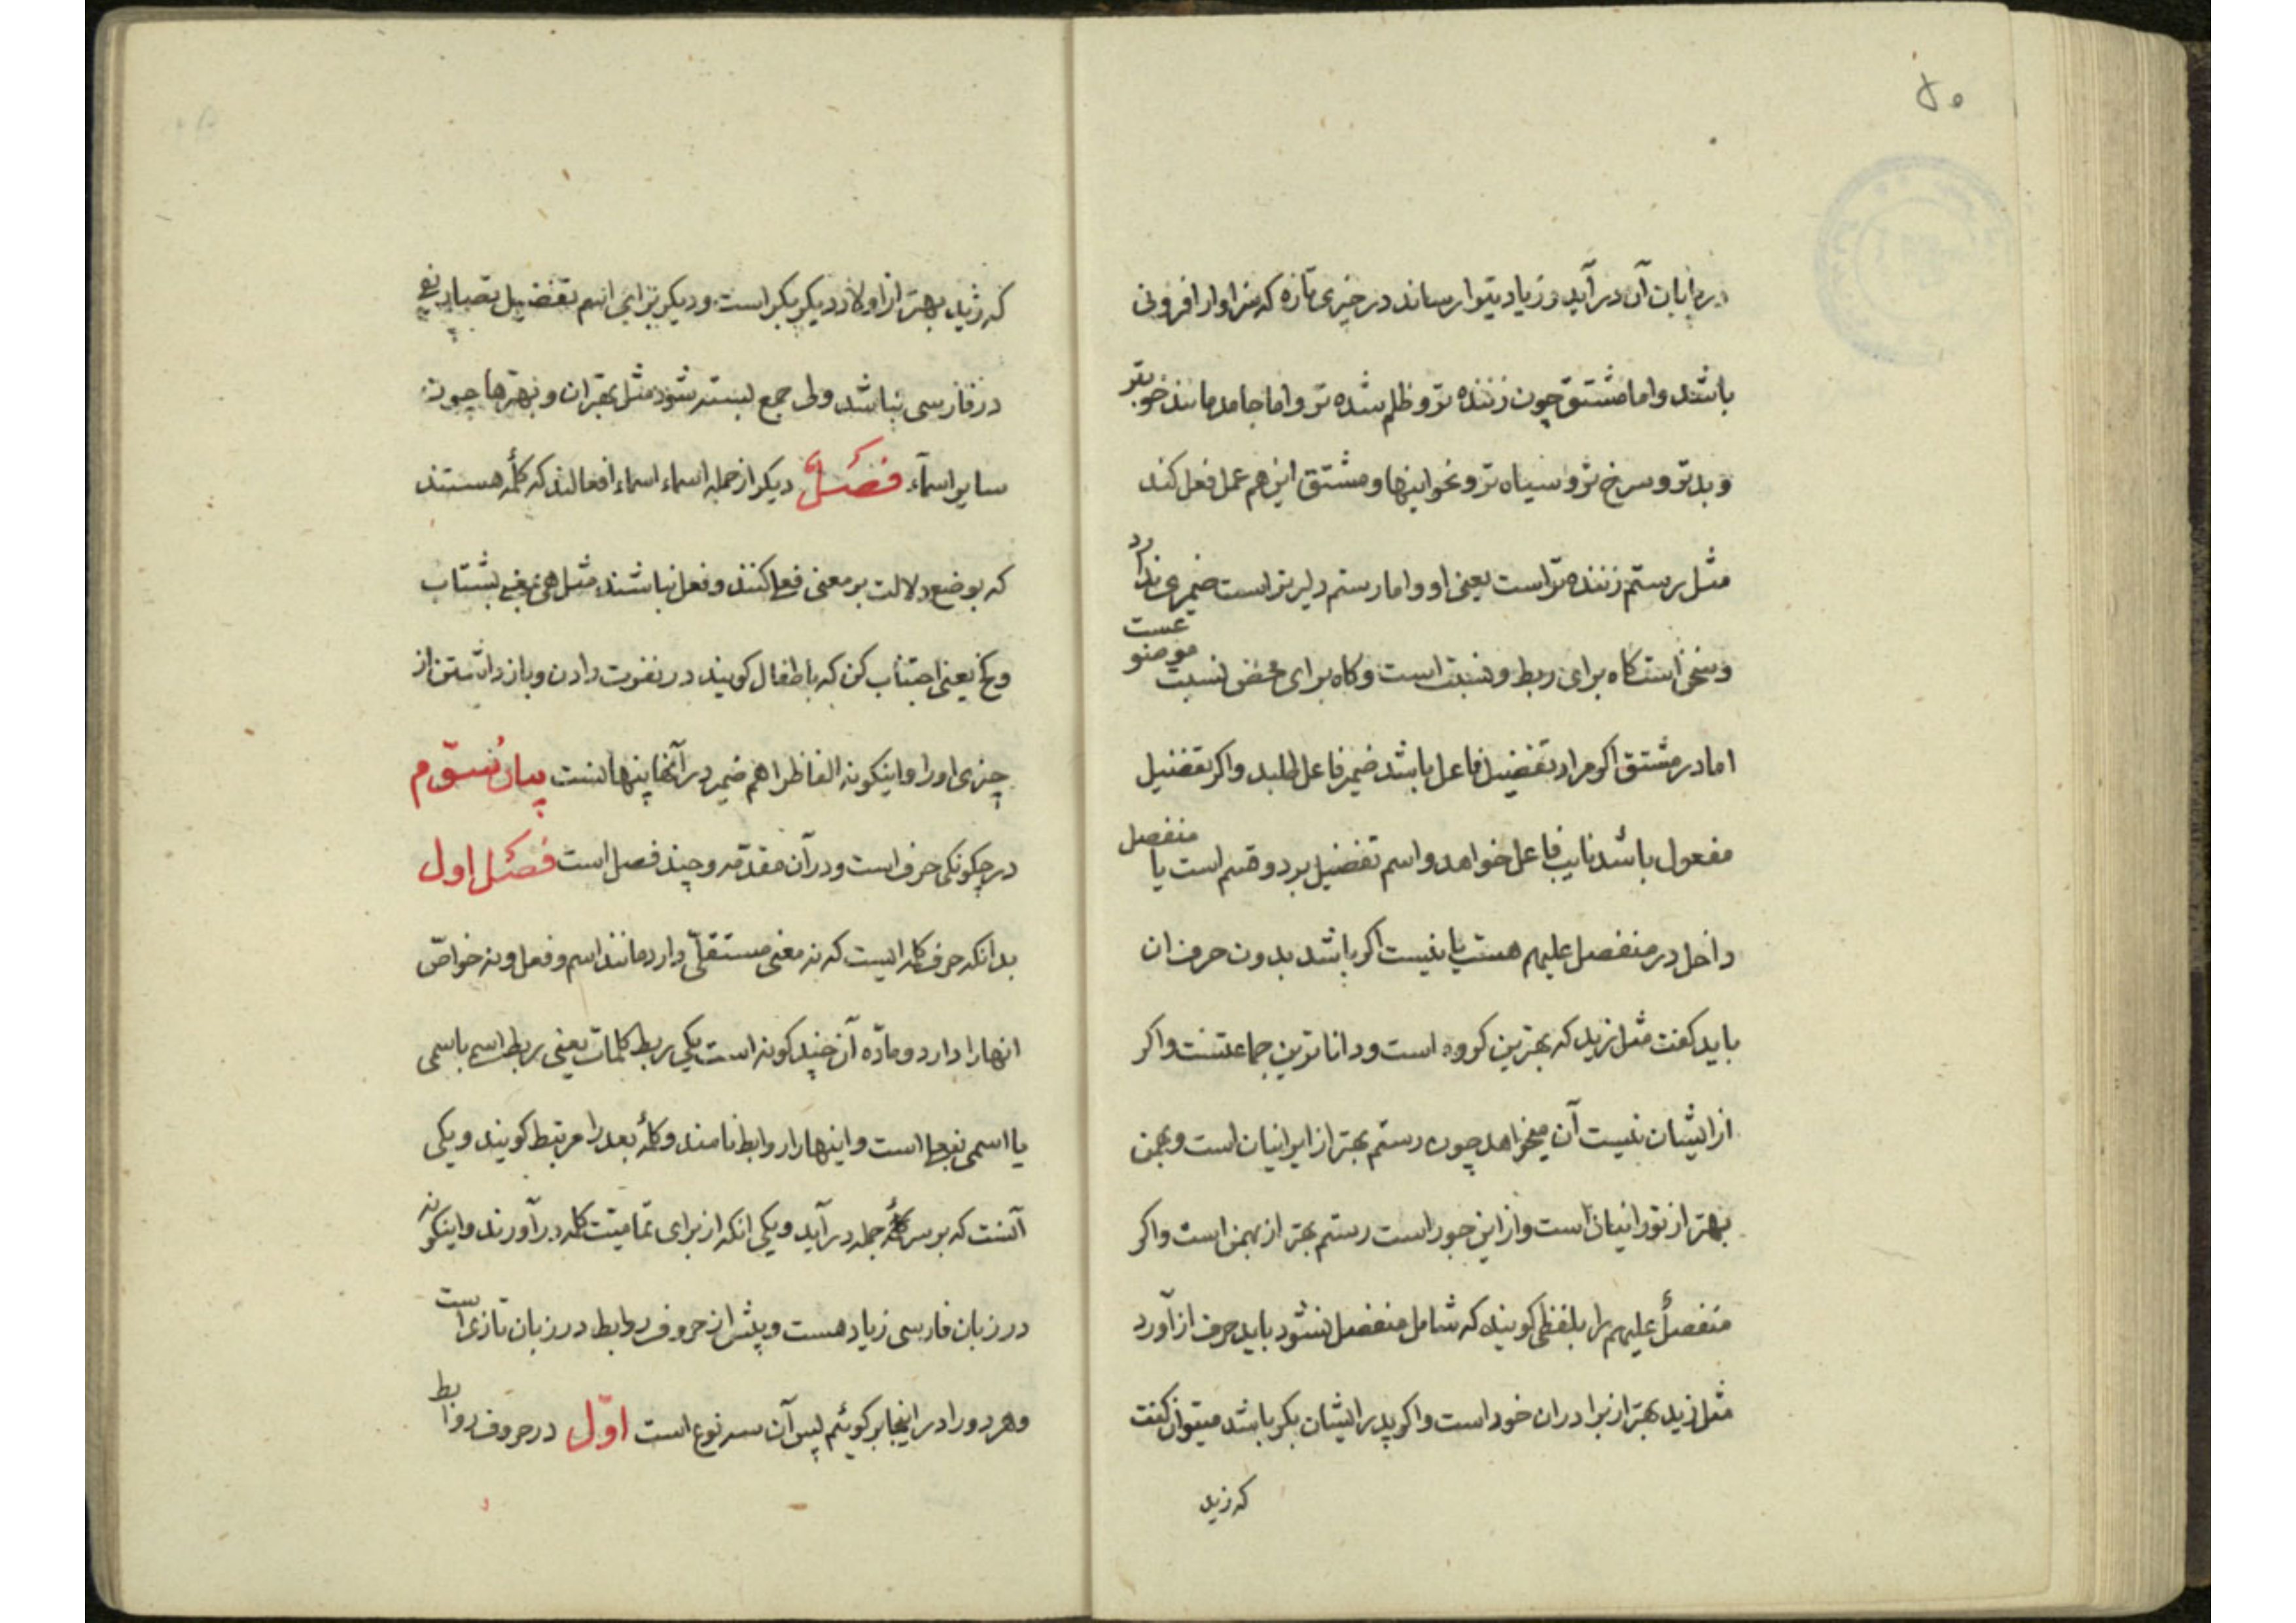 ۴۰
در پایان آن درآید و زیادتیرا رساند در چیزی تازه که سزاوار افزونی
باشد و اما مشتق چون زننده تر و ظلم شده تر و اما جامد مانند خوبتر
و بدتر و سرخ تر و سیاه تر و نحو اینها و مشتق این هم عمل فعل کند
مثل رستم زننده تر است یعنی او و اما رستم دلیر تر است ضمیری ندارد
و سخن است گاه برای ربط و نسبت است و گاه برای محض نسبت موضوعست
اما در مشتق اکر مراد تفضیل فاعل باشد ضمیر فاعل طلبد و اکر تفضیل
مفعول باشد نایب فاعل خواهد و اسم تفضیل بر دو قسم است یا منفصل
داخل در منفصل علیهم هست یا نیست اکر باشد بدون حرف ان
باید کفت مثل زید که بهترین کروه است و داناترین جماعتست و اکر
از ایشان نیست آن میخواهد چون رستم بهتر از ایرانیان است و بهمن
بهتر از تورانیان است و از این جور است رستم بهتر از بهمن است و اکر
منفصل علیهم را بلفظی کویند که شامل منفصل نشود باید حرف از آورد
مثل زید بهتر از برادران خود است و اکر پدر ایشان بکر باشد میتوان کفت
که زید
که زید بهتر از اولاد دیکر بکر است و دیکر برای اسم تفضیل تصاریفی
در فارسی نباشد ولی جمع بسته شود مثل بهتران و بهترها چون
سایر اسمآء فصل دیکر از جمله اسماء اسماء افعالند که کلمهٔ هستند
که بوضع دلالت بر معنی فعل کنند و فعل نباشند مثل هی یعنی بشتاب
و کخ یعنی اجتناب کن که باطفال کویند در نفرت دادن و باز داشتن از
چیزی او را و اینکونه الفاظ را هم ضمیر در آنها پنهانست بیان سوّم
در چکونکی حرف است و در آن مقدّمه و چند فصل است فصل اول
بدانکه حرف کلمه ایست که نه معنی مستقلّی دارد مانند اسم و فعل و نه خواصّ
انها را دارد و مادّه آن چند کونه است یکی ربط کلمات یعنی ربط اسم باسمی
یا اسمی بفعلها است و اینها را روابط نامند و کلمهٔ بعد را مرتبط کویند و یکی
آنست که بر سر کلمهٔ جمله درآید و یکی انکه از برای تمامیّت کلمه درآورند و اینکونه
در زبان فارسی زیاد هست و پیش از حروف روابط در زبان تازی است
و هر دو را در اینجا بر کوئیم پس آن سه نوع است اوّل در حروف روابط